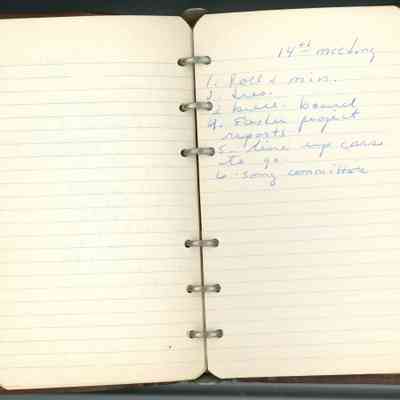 14th meeting
1. Roll & min.
2. Tres.
3. bulle. board
4. Easter project
reports
5. line up cars
to go
6. song committee